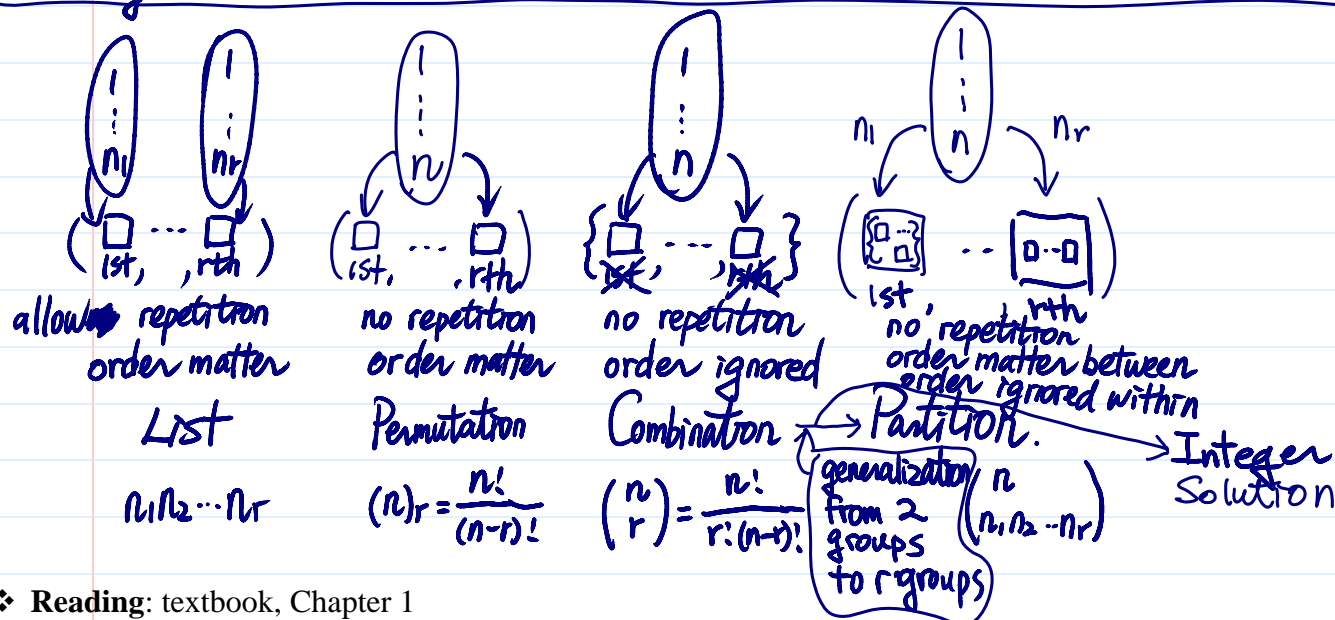 1 ⋮ n₁
1 ⋮ nᵣ
( □ ⋯ □ )
1st, , rth
allow repetition
order matter
List
n₁n₂⋯nᵣ
1 ⋮ n
( □ ⋯ □ )
1st, , rth
no repetition
order matter
Permutation
(n)ᵣ = n! / (n-r)!
1 ⋮ n
{ □ ⋯ □ }
1st, , rth
no repetition
order ignored
Combination
(n r) = n! / r!(n-r)!
1 ⋮ n
n₁ nᵣ
( {□ ⋯ □} ⋯ □⋯□ )
1st, , rth
no repetition
order matter between
order ignored within
Partition.
generalization
from 2
groups
to r groups
(n n₁ n₂ ⋯ nᵣ)
Integer
Solution
❖ Reading: textbook, Chapter 1